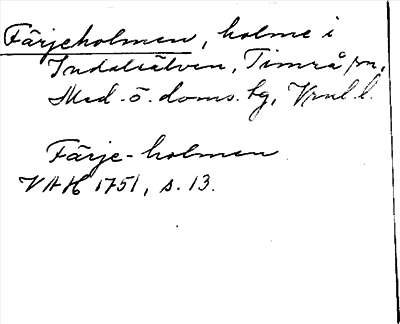 Färjeholmen, holme i
Indalsälven, Timrå sn,
Med. ö. doms. tg, Vrnl. l.
Färje-holmen
VAH 1751, s. 13.